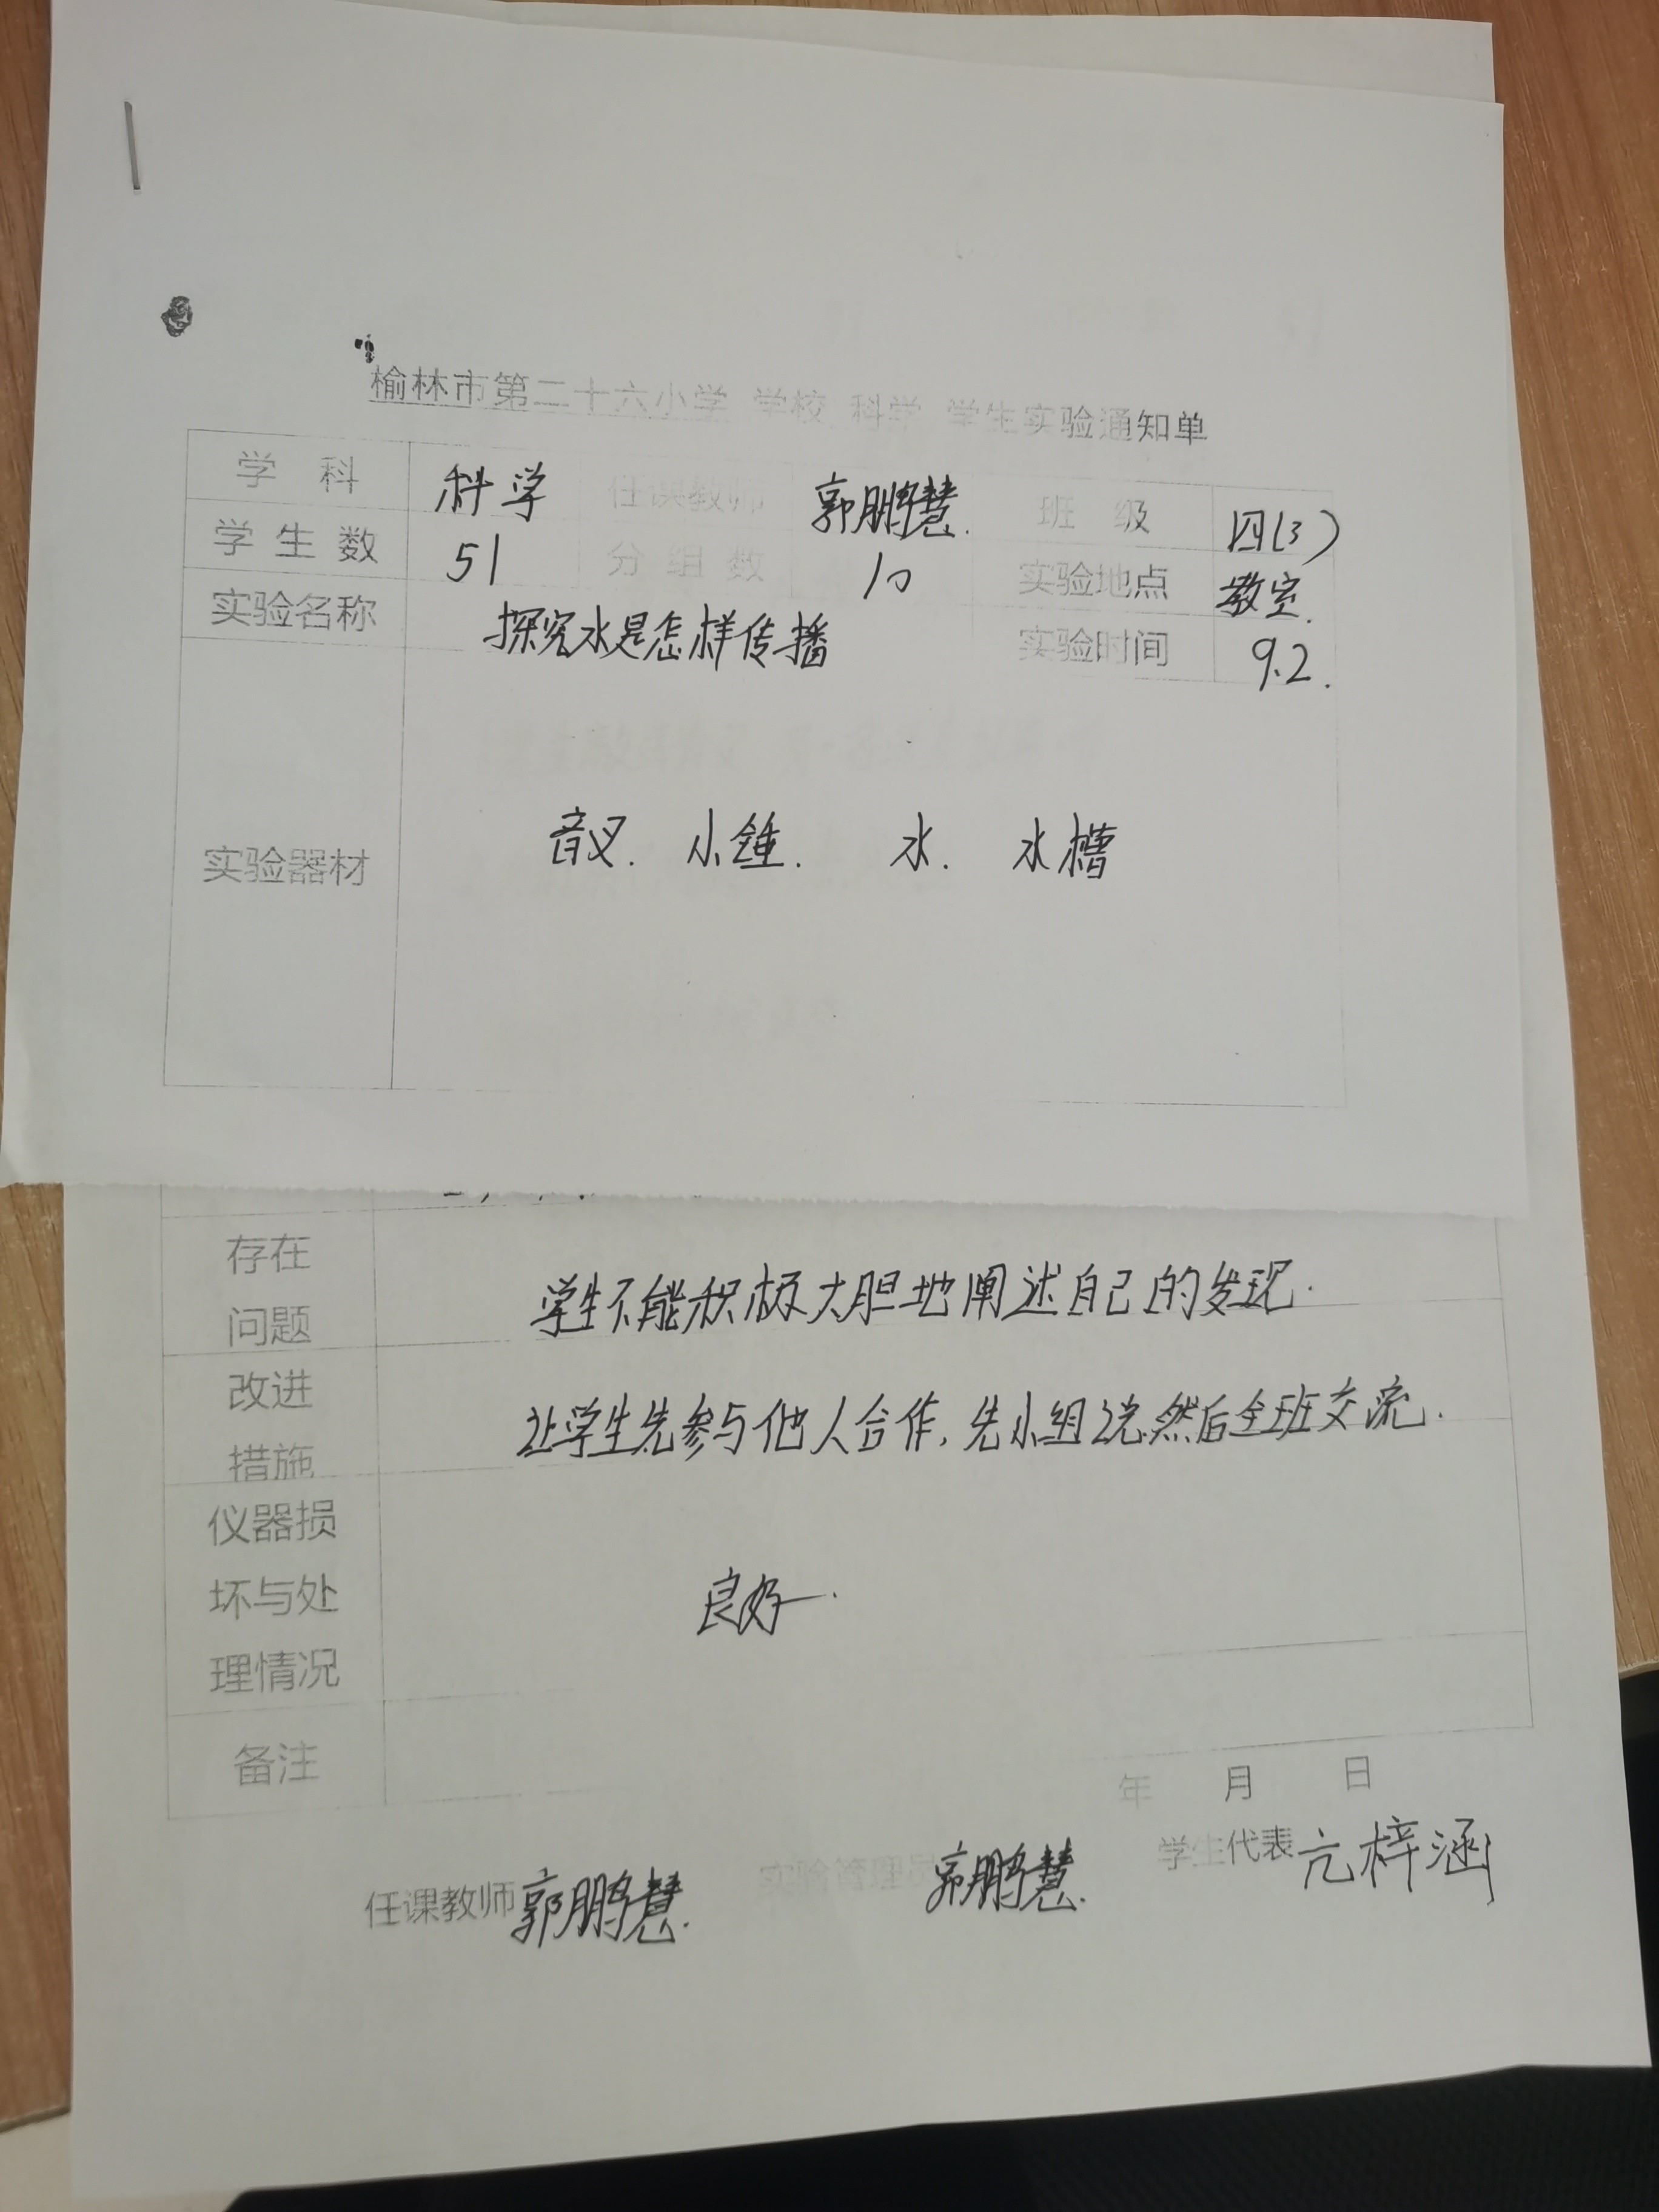 榆林市第二十六小学 学校 科学 学生实验通知单
学 科 科学 任课教师 郭鹏慧. 班 级 四(3)
学 生 数 51 分 组 数 10 实验地点 教室.
实验名称 探究水是怎样传播 实验时间 9.2.
实验器材 音叉. 小锤. 水. 水槽
存在
问题 学生不能积极大胆地阐述自己的发现.
改进
措施 让学生先参与他人合作,先小组说.然后全班交流.
仪器损
坏与处 良好.
理情况
备注
年 月 日
任课教师 郭鹏慧. 实验管理员 郭鹏慧. 学生代表 亢梓涵